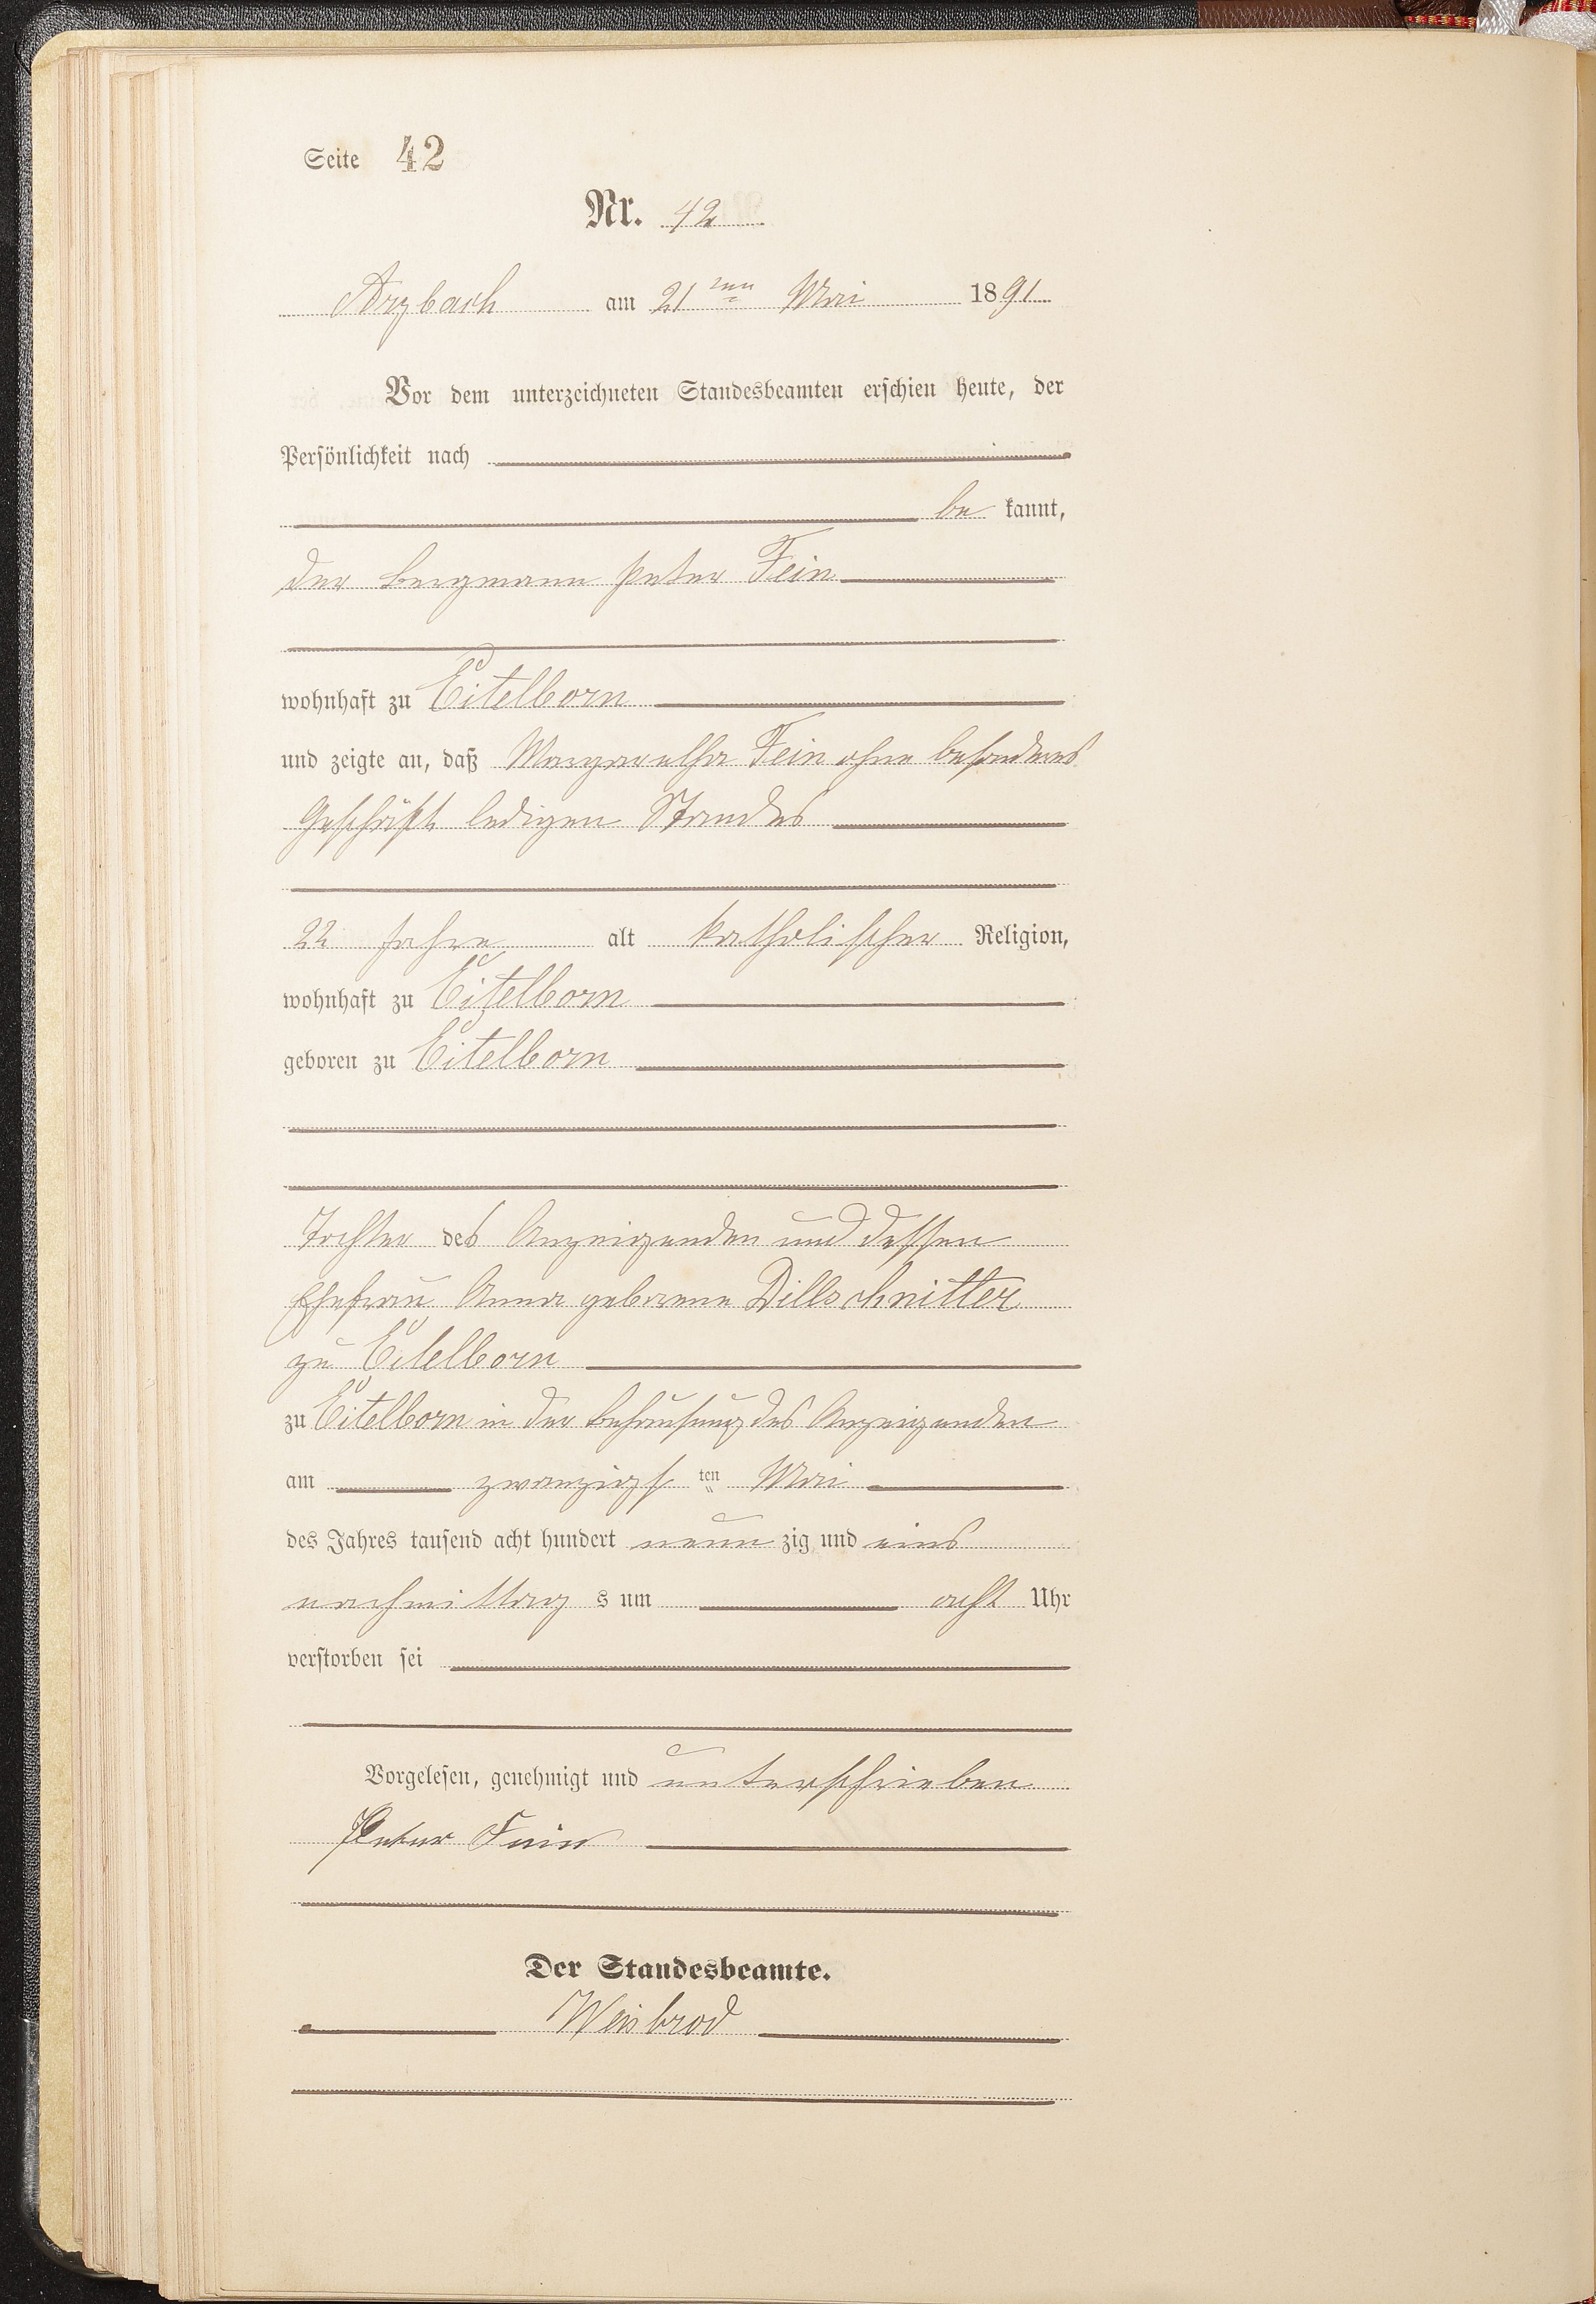 Seite 42
Nr. 42
Arzbach am 21ten Mai 1891
Vor dem unterzeichneten Standesbeamten erschien heute, der
Persönlichkeit nach
be kannt,
der Bergmann Peter Fein
wohnhaft zu Eitelborn
und zeigte an, daß Margaretha Fein ohne besonderes
Geschäft ledigen Standes
22 Jahre alt katholischer Religion,
wohnhaft zu Eitelborn
geboren zu Eitelborn
Tochter des Anzeigenden und dessen
Ehefrau Anna geborene Dillschnitter
zu Eitelborn
zu Eitelborn in der Behausung des Anzeigenden
am zwanzigsten Mai
des Jahres tausend acht hundert neun zig und eins
nachmittag s um acht Uhr
verstorben sei
Vorgelesen, genehmigt und unterschrieben
Peter Fein
Der Standesbeamte.
Weisbrod